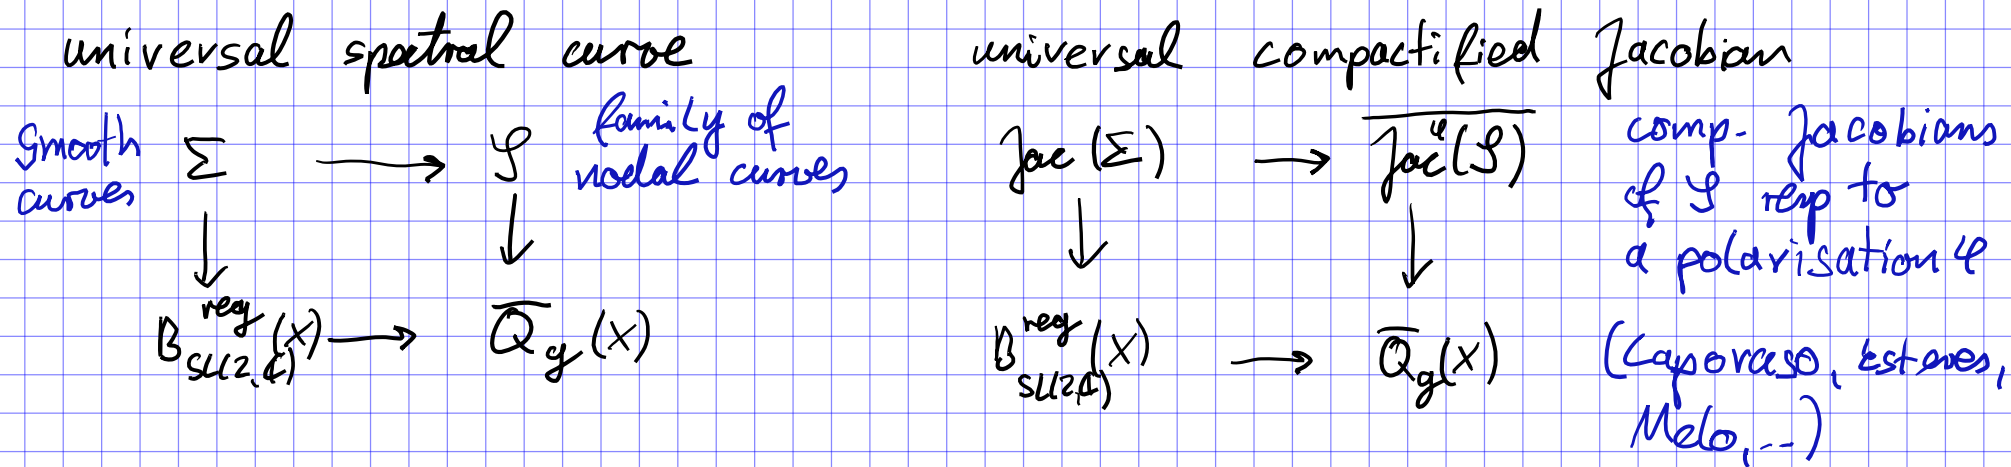 universal spectral curve
smooth curves
Σ → 𝒮
family of nodal curves
↓ ↓
B^{reg}_{SL(2,ℂ)}(X) → \overline{Q}_g(X)
universal compactified Jacobian
Jac(Σ) → \overline{Jac^φ(𝒮)}
↓ ↓
B^{reg}_{SL(2,ℂ)}(X) → \overline{Q}_g(X)
comp. Jacobians
of 𝒮 resp to
a polarisation φ
(Caporaso, Esteves,
Melo, ...)